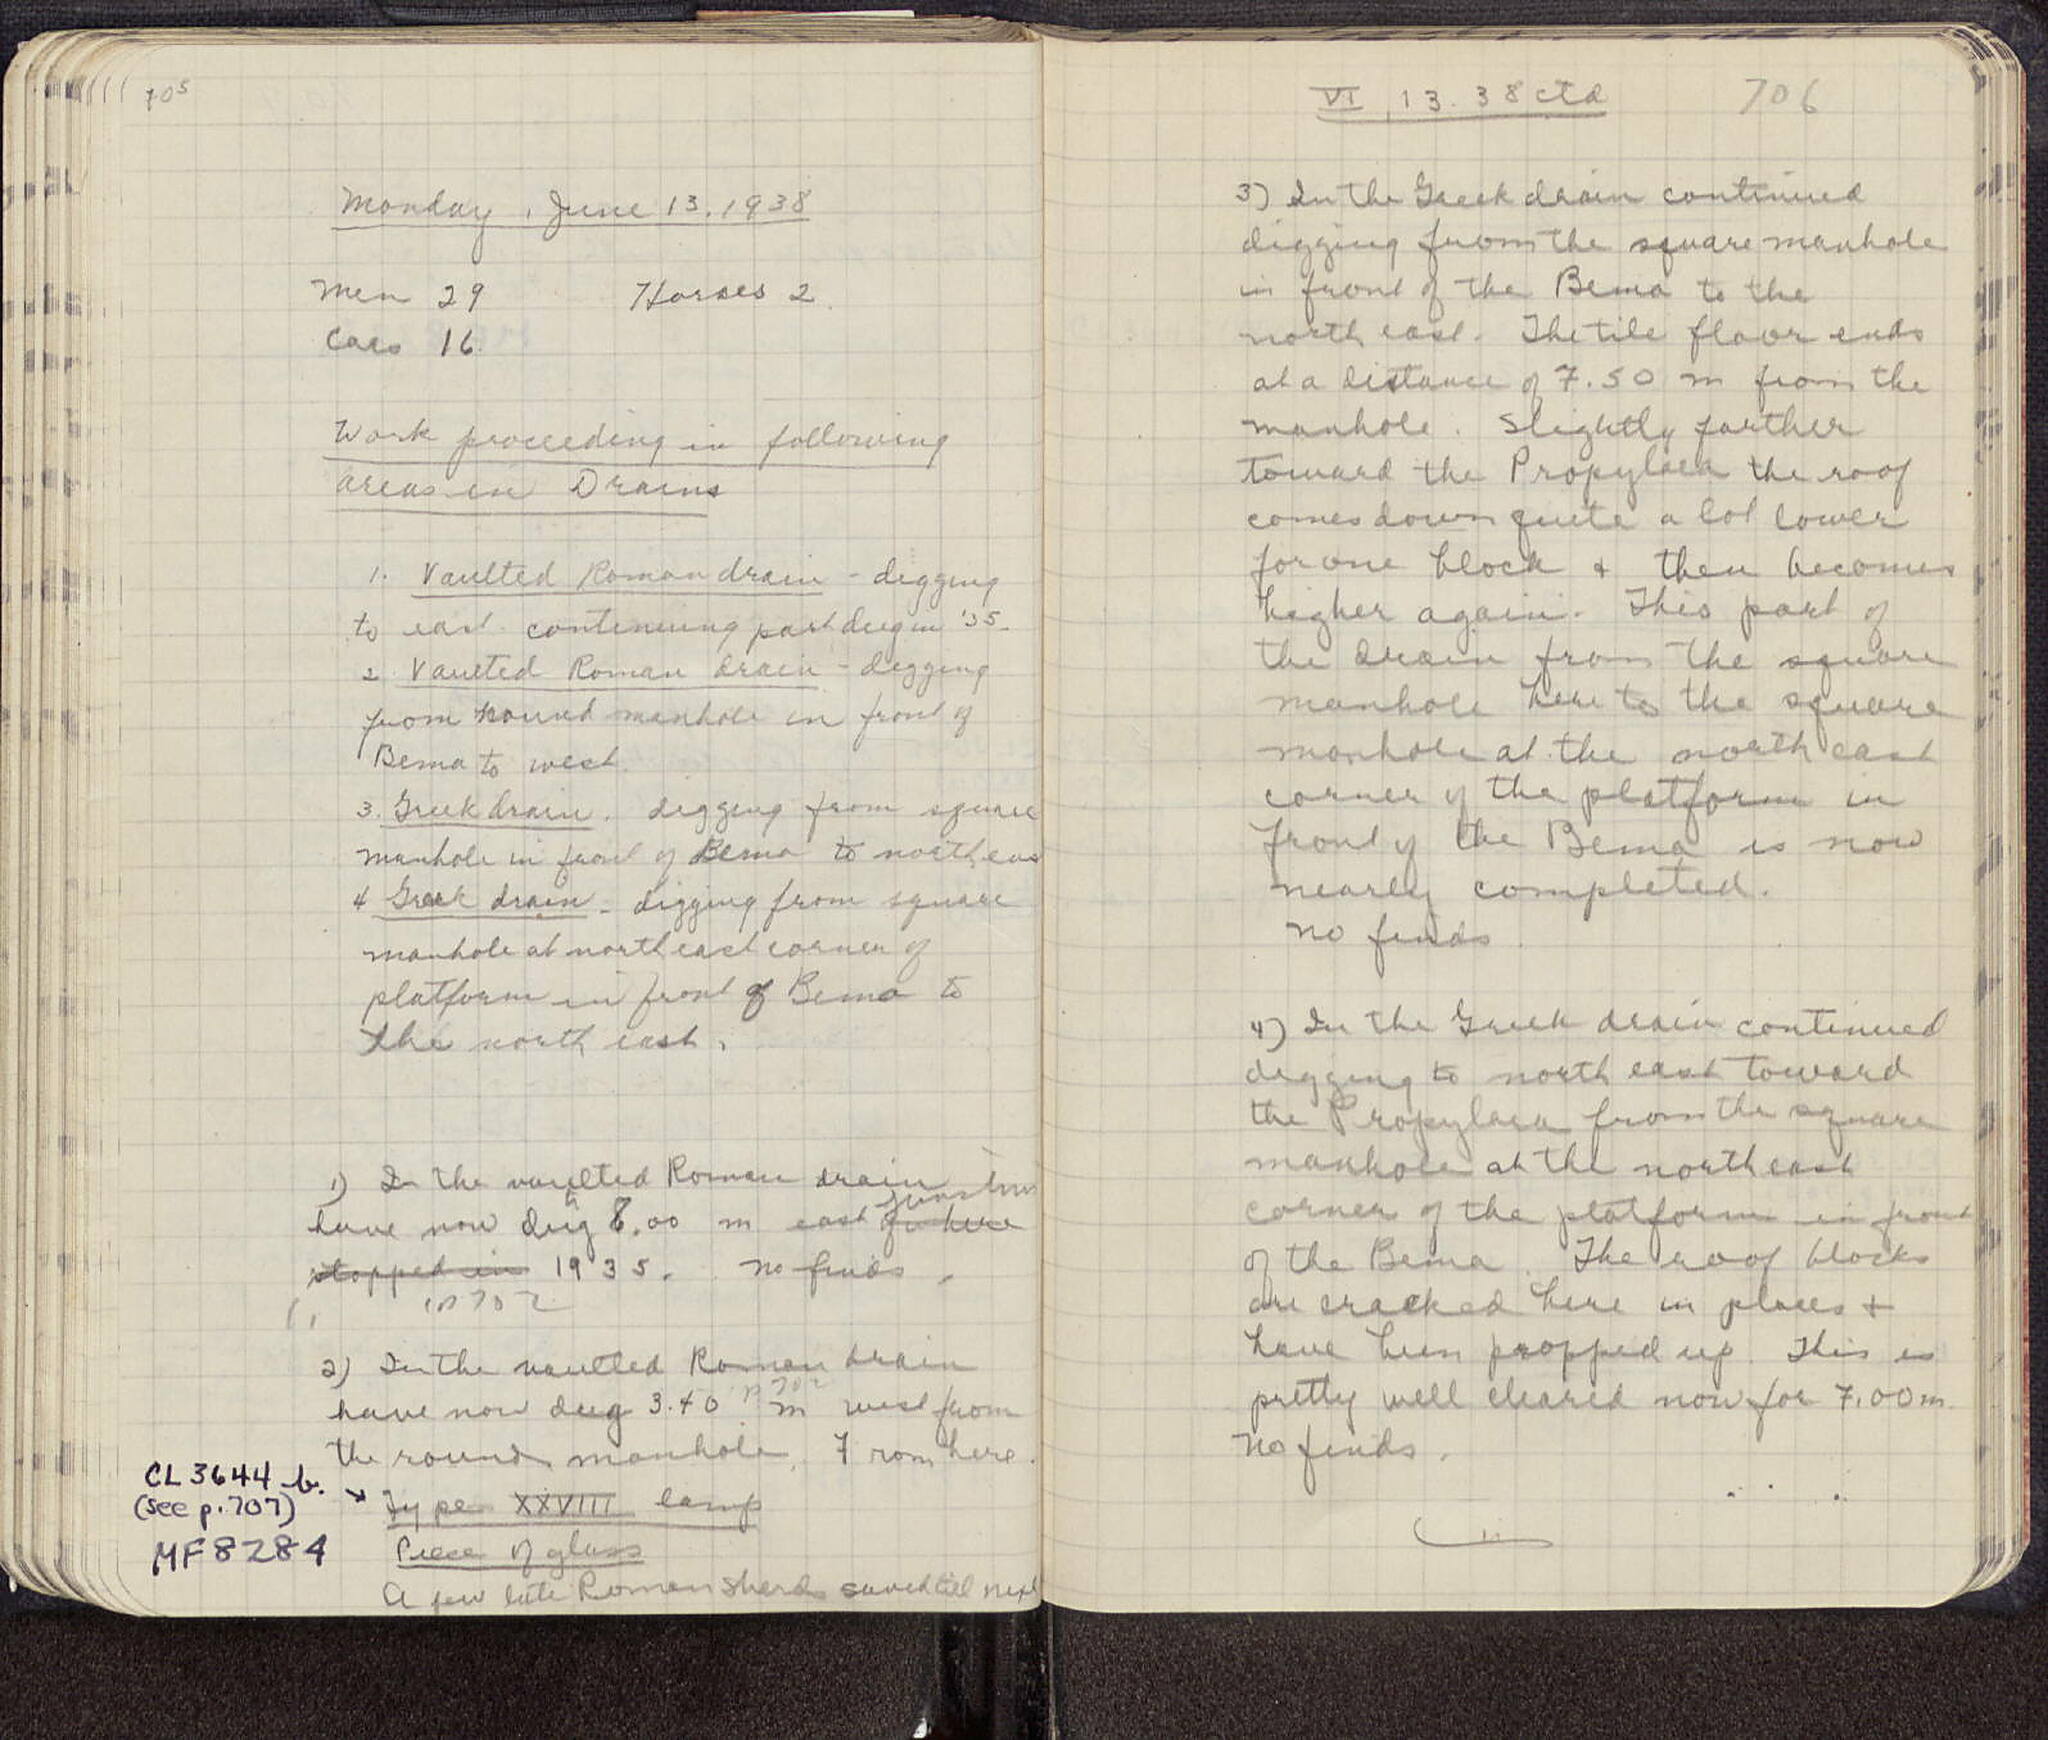 705
Monday, June 13. 1938
Men 29 Horses 2.
Cars 16.
Work proceeding in following
areas in Drains
1. Vaulted Roman drain - digging
to east continuing part dug in '35-
2 Vaulted Roman drain - digging
from round manhole in front of
Bema to west.
3. Greek drain. digging from square
manhole in front of Bema to north eas
4 Greek drain - digging from square
manhole at north east corner of
platform in front of Bema to
the north east.
1) In the vaulted Roman drain
junction
have now dug 8.00 m east of where
stopped in 1935. No finds.
in 702
2) In the vaulted Roman drain
p 702
have now dug 3.40 m west from
the round manhole. From here.
CL 3644 b.
(see p. 707)
MF 8284
Type XXVIII lamp
Piece of glass
A few late Roman sherds saved til next
VI, 13. 38 ctd 706
3) In the Greek drain continued
digging from the square manhole
in front of the Bema to the
north east. The tile floor ends
at a distance of 7.50 m from the
manhole. Slightly farther
toward the Propylaea the roof
comes down quite a lot lower
for one block + then becomes
higher again. This part of
the drain from the square
manhole here to the square
manhole at the north east
corner of the platform in
front of the Bema is now
nearly completed.
No finds.
4) In the Greek drain continued
digging to north east toward
the Propylaea from the square
manhole at the north east
corner of the platform in front
of the Bema. The roof blocks
are cracked here in places +
have been propped up. This is
pretty well cleared now for 7.00 m.
No finds.